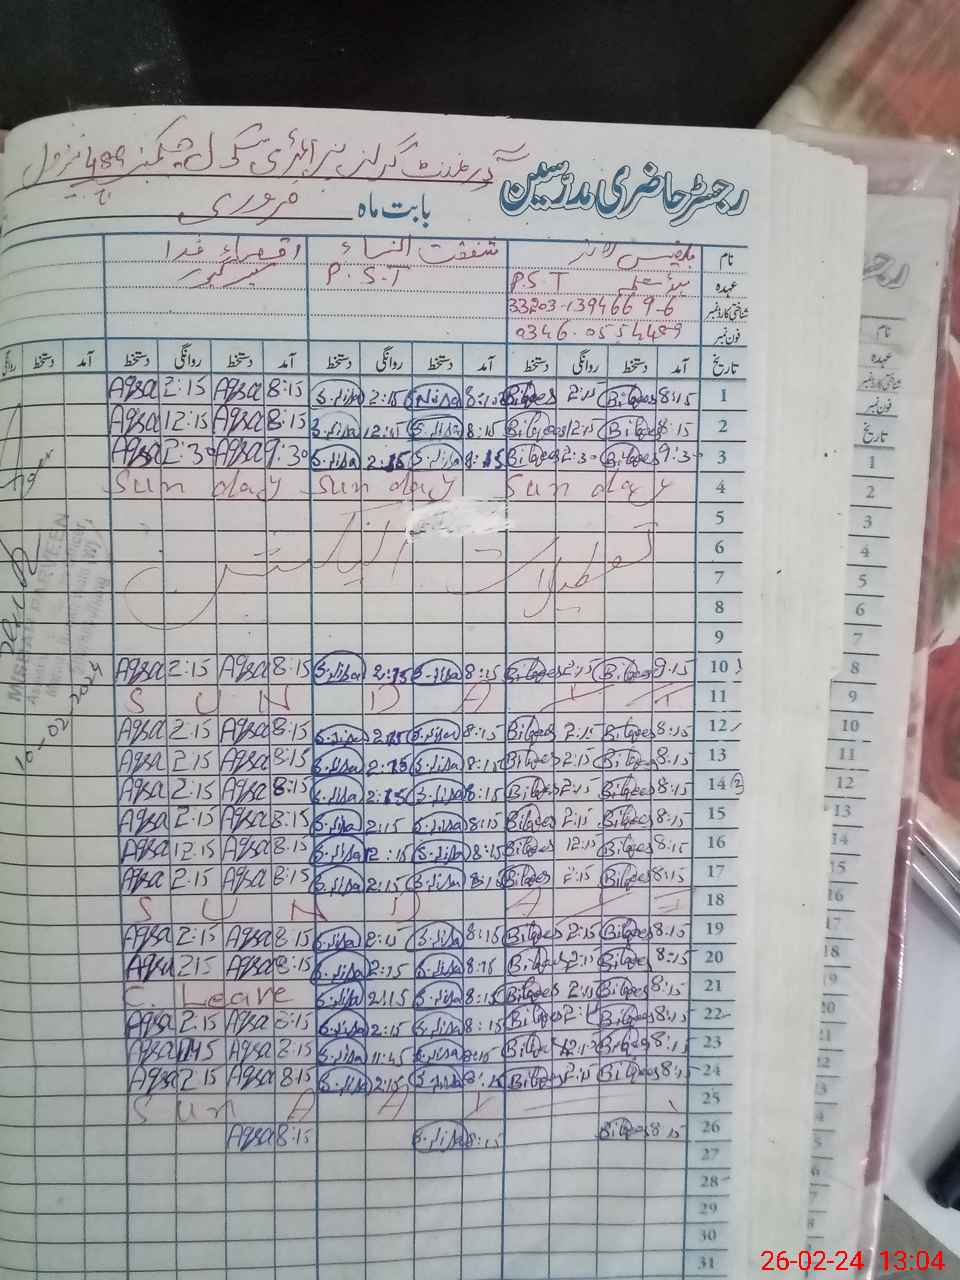 گورنمنٹ گرلز پرائمری سکول چکنمبر 489 ج ب
رجسٹر حاضری مدرسین
بابت ماہ فروری
نام بلقیس شفقت النساء
عہدہ P.S.T P.S.T
شناختی کارڈ نمبر 33203-1394669-6
فون نمبر 0346-0554489
تاریخ آمد دستخط روانگی دستخط آمد دستخط روانگی دستخط آمد دستخط روانگی دستخط آمد دستخط
1 8:15 Bilqees 2:15 Bilqees 8:15 S.Nisa 2:15 S.Nisa 8:15 Aqsa 2:15 Aqsa
2 8:15 Bilqees 12:15 Bilqees 8:15 S.Nisa 12:15 S.Nisa 8:15 Aqsa 12:15 Aqsa
3 9:30 Bilqees 2:30 Bilqees S.Nisa S.Nisa 9:30 Aqsa 2:30 Aqsa
4 Sunday Sunday Sunday
5
6
7 تعطیلات الیکشن
8
9
10 9:15 Bilqees 2:15 Bilqees 8:15 S.Nisa 2:15 S.Nisa 8:15 Aqsa 2:15 Aqsa
11 SUNDAY
12 8:15 Bilqees 2:15 Bilqees 8:15 S.Nisa 2:15 S.Nisa 8:15 Aqsa 2:15 Aqsa
13 8:15 Bilqees 2:15 Bilqees 8:15 S.Nisa 2:15 S.Nisa 8:15 Aqsa 2:15 Aqsa
14 8:15 Bilqees 2:15 Bilqees 8:15 S.Nisa 2:15 S.Nisa 8:15 Aqsa 2:15 Aqsa
15 8:15 Bilqees 2:15 Bilqees 8:15 S.Nisa 2:15 S.Nisa 8:15 Aqsa 2:15 Aqsa
16 8:15 Bilqees 12:15 Bilqees 8:15 S.Nisa 12:15 S.Nisa 8:15 Aqsa 12:15 Aqsa
17 8:15 Bilqees 2:15 Bilqees 8:15 S.Nisa 2:15 S.Nisa 8:15 Aqsa 2:15 Aqsa
18 SUNDAY
19 8:15 Bilqees 2:15 Bilqees 8:15 S.Nisa 2:15 S.Nisa 8:15 Aqsa 2:15 Aqsa
20 8:15 Bilqees 2:15 Bilqees 8:15 S.Nisa 2:15 S.Nisa 8:15 Aqsa 215 Aqsa
21 8:15 Bilqees 2:15 Bilqees 8:15 S.Nisa 2:15 S.Nisa C. Leave
22 8:15 Bilqees Bilqees 8:15 S.Nisa 2:15 S.Nisa 8:15 Aqsa 2:15 Aqsa
23 8:15 Bilqees Bilqees 8:15 S.Nisa 11:45 S.Nisa 8:15 Aqsa 1145 Aqsa
24 8:15 Bilqees 2:15 Bilqees 8:15 S.Nisa 2:15 S.Nisa 8:15 Aqsa 2:15 Aqsa
25
26 8:15 Bilqees 8:15 S.Nisa 8:15 Aqsa
27
28
29
30
31
10-02-2024
نام
عہدہ
شناختی کارڈ نمبر
فون نمبر
تاریخ
1
2
3
4
5
6
7
8
9
10
11
12
13
14
15
16
17
18
19
20
26-02-24 13:04